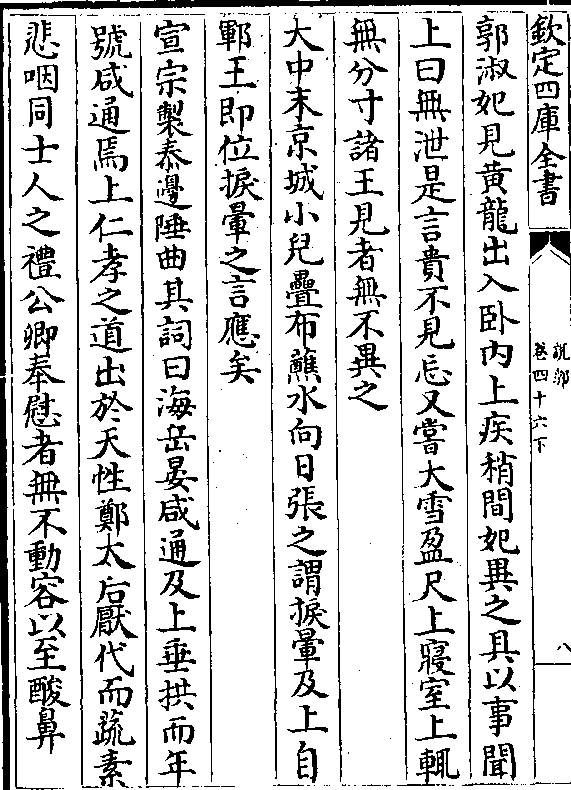 欽定四庫全書
說郛
卷四十六下
八
郭淑妃見黃龍出入卧内上疾稍間妃異之具以事聞
上曰無泄是言貴不見忘又嘗大雪盈尺上寢室上輒
無分寸諸王見者無不異之
大中末京城小兒疊布蘸水向日張之謂捩暈及上自
鄆王即位捩暈之言應矣
宣宗製泰邊陲曲其詞曰海岳晏咸通及上垂拱而年
號咸通焉上仁孝之道出於天性鄭太后厭代而蔬素
悲咽同士人之禮公卿奉慰者無不動容以至酸鼻